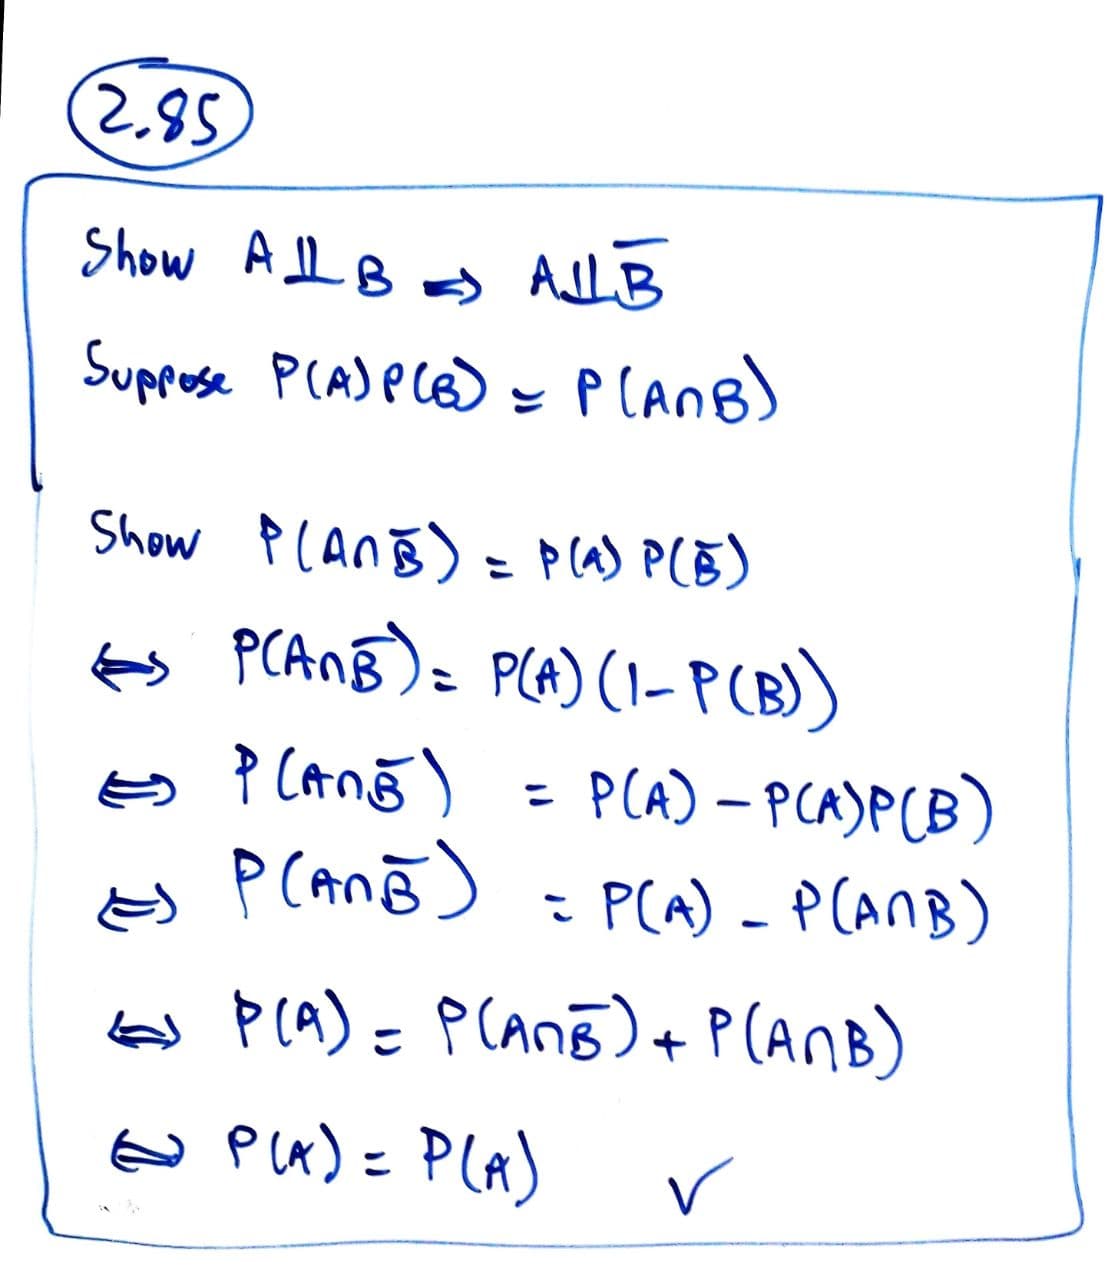 2.85
Show A ⫫ B ⇒ A ⫫ B̅
Suppose P(A)P(B) = P(A∩B)
Show P(A∩B̅) = P(A) P(B̅)
⇔ P(A∩B̅) = P(A)(1-P(B))
⇔ P(A∩B̅) = P(A) - P(A)P(B)
⇔ P(A∩B̅) = P(A) - P(A∩B)
⇔ P(A) = P(A∩B̅) + P(A∩B)
⇔ P(A) = P(A) ✓